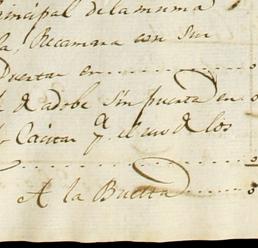 Principal de la misma
la, Recamara con sus
Puertas en
de adobe sin puerta en
Casitas q.e de los
A la Buelta